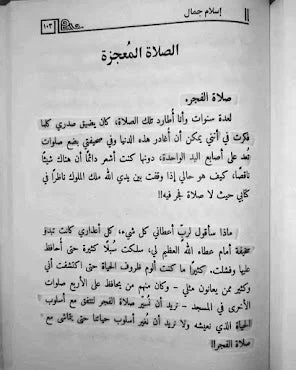 إسلام جمال
١٠٣
الصلاة المُعجزة
صلاة الفجر.
لعدة سنوات وأنا أُطارد تلك الصلاة، كان يضيق صدري كلما
فكرت في أنني يمكن أن أُغادر هذه الدنيا وفي صحيفتي بضع صلوات
تُعد على أصابع اليد الواحدة، دونها كنت أشعر دائمًا أن هناك شيئًا
ناقصًا، كيف هو حالي إذا وقفت بين يدي الله ملك الملوك ناظرًا في
كتابي حيث لا صلاة فجر فيه!!
ماذا سأقول لربٍّ أعطاني كل شيء، كل أعذاري كانت تبدو
سخيفة أمام عطاء الله العظيم لي، سلكت سُبلًا كثيرة حتى أُحافظ
عليها وفشلت. كثيرًا ما كنت ألوم ظروف الحياة حتى اكتشفت أني
وكثير ممن يعانون مثلي - وكان منهم من يحافظ على الأربع صلوات
الأخرى في المسجد - نريد أن نُسيِّر صلاة الفجر لتتفق مع أسلوب
الحياة الذي نعيشه ولا نريد أن نُغير أسلوب حياتنا حتى يتماشى مع
صلاة الفجر!!